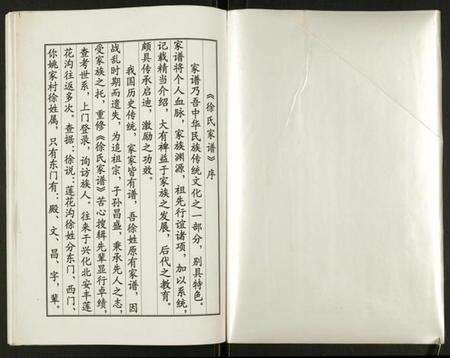 《徐氏家谱》序
家谱乃吾中华民族传统文化之一部分，别具特色。
家谱将个人血脉，家族渊源，祖先行谊诸项，加以系统，
记载精当介绍，大有裨益于家族之发展，后代之教育。
颇具传承启迪，激励之功效。
我国历史传统，家家皆有谱，吾徐姓原有家谱，因
战乱时期而遗失，为追祖宗，子孙昌盛，秉承先人之志，
受家族之托，重修《徐氏家谱》苦心搜辑先辈显行卓绩，
查考世系，上门登录，询访族人，往来于兴化北安丰莲
花沟往返多次。查据：徐说，莲花沟徐姓分东门、西门、
你姚家村徐姓属，只有东门有：殿、文、昌、字，辈。